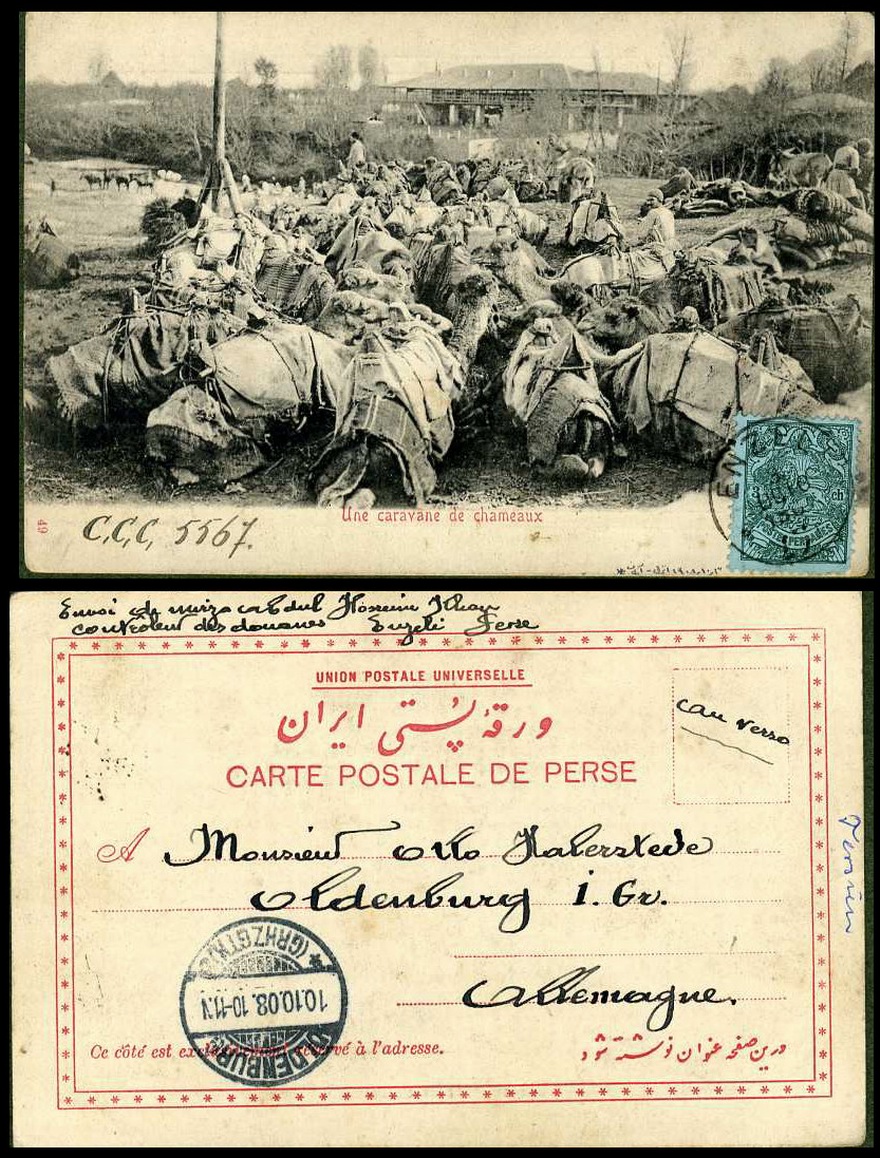 49
C.C.C. 5567.
Une caravane de chameaux
ENZELI
3 ch
Envoi de mirza abdul Hossein Khan
contrôleur des douanes Enzeli Perse
UNION POSTALE UNIVERSELLE
ورقهٔ پُستی ایران
CARTE POSTALE DE PERSE
(au verso
A Monsieur Otto Haberstede
Oldenburg i. Gr.
Allemagne.
OLDENBURG
10.10.08. 10-11.V
*(GRHZGTM.)
Ce côté est exclusivement réservé à l'adresse.
درین صفحه عنوان نوشته شود
Persien